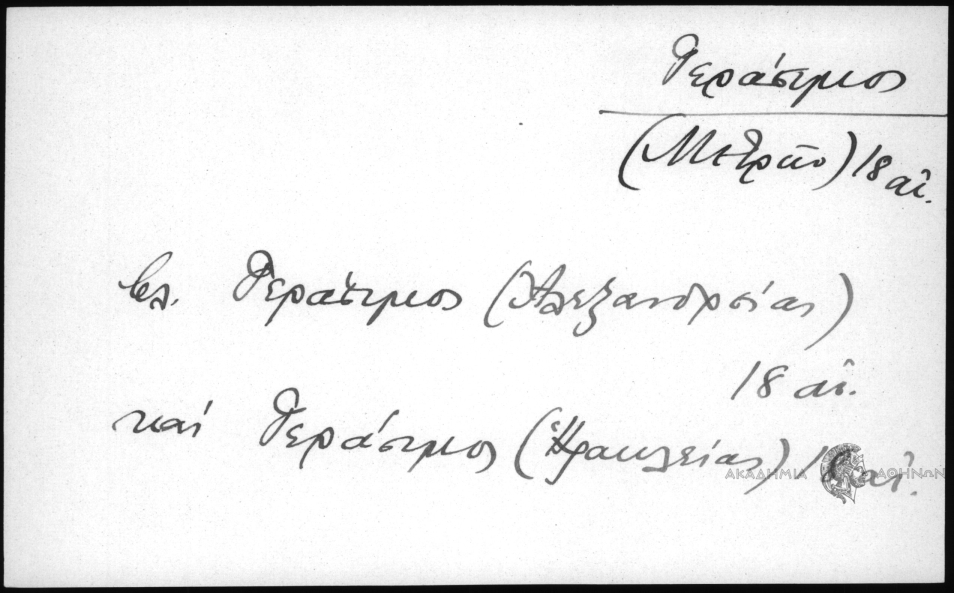 Γεράσιμος
(Μητρπο) 18 αἰ.
βλ. Γεράσιμος (Ἀλεξανδρείας)
18 αἰ.
καὶ Γεράσιμος (Ἡρακλείας) αἰ.
ΑΚΑΔΗΜΙΑ ΑΘΗΝΩΝ